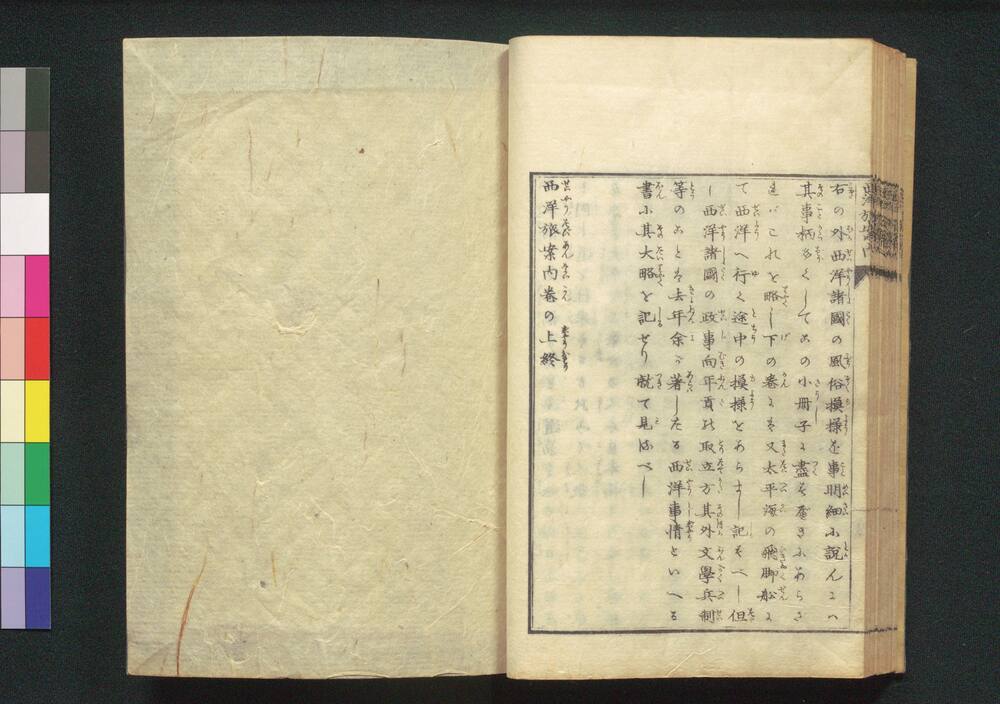 右の外西洋諸國の風俗模様を事明細に説んにハ
其事柄多くしてこの小冊子に盡すべきにあらざ
れバこれを略し下の巻にハ又太平海の飛脚船に
て西洋へ行く途中の模様をあらまし記すべし但
し西洋諸國の政事向年貢の取立方其外文學兵制
等のことハ去年余が著したる西洋事情といへる
書に其大略を記せり就て見るべし
西洋旅案内巻の上終